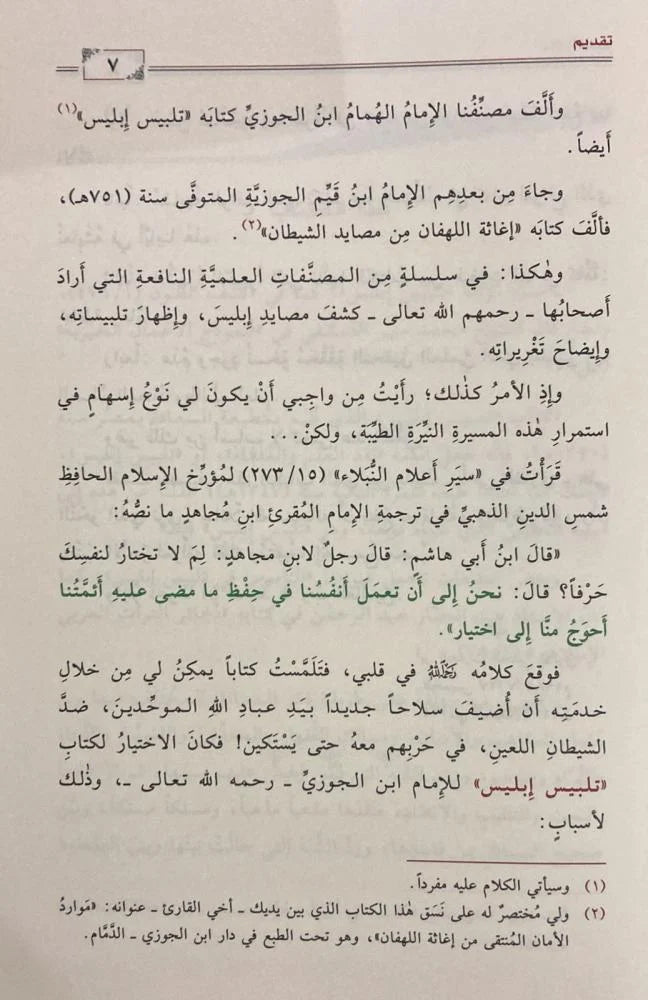 تقديم
٧
وأَلَّفَ مصنِّفُنا الإِمامُ الهُمامُ ابنُ الجوزيِّ كتابَه «تلبيس إِبليس»(١)
أَيضاً.
وجاءَ مِن بعدِهِم الإِمامُ ابنُ قَيِّمِ الجوزيَّةِ المتوفَّى سنة (٧٥١هـ)،
فألَّفَ كتابَه «إغاثة اللهفان مِن مصايد الشيطان»(٢).
وهٰكذا: في سلسلةٍ مِن المصنَّفاتِ العلميَّةِ النافعةِ التي أَرادَ
أَصحابُها ـ رحمهم الله تعالى ـ كشفَ مصايدِ إِبليسَ، وإِظهارَ تلبيساتِه،
وإِيضاحَ تَغْريراتِه.
وإِذِ الأمرُ كذٰلك؛ رأَيْتُ مِن واجبي أَنْ يكونَ لي نَوْعُ إِسهامٍ في
استمرارِ هٰذه المسيرةِ النيِّرَةِ الطيِّبة، ولكنْ...
قَرَأْتُ في «سيَرِ أَعلام النُّبَلاء» (٢٧٣/١٥) لمُؤرِّخ الإسلام الحافِظِ
شمسِ الدينِ الذهبيِّ في ترجمةِ الإِمامِ المُقرئِ ابنِ مُجاهدٍ ما نصُّهُ:
«قالَ ابنُ أَبي هاشمٍ: قالَ رجلٌ لابنِ مجاهدٍ: لِمَ لا تختارُ لنفسِكَ
حَرْفاً؟ قالَ: نحنُ إِلى أَن تعمَلَ أَنفُسُنا في حِفْظِ ما مضى عليهِ أَئمَّتُنا
أَحوَجُ منَّا إِلى اختيار».
فوقعَ كلامُه ﵀ في قلبي، فتَلَمَّسْتُ كتاباً يمكِنُ لي مِن خلالِ
خدمَتِه أَن أُضيفَ سلاحاً جديداً بيَدِ عبادِ اللهِ الموحِّدينَ، ضدَّ
الشيطانِ اللعينِ، في حَرْبِهم معهُ حتى يَسْتَكين! فكانَ الاختيارُ لكتابِ
«تلبيس إِبليس» للإِمام ابن الجوزيِّ ـ رحمه الله تعالى ـ، وذٰلك
لأسبابٍ:
(١) وسيأتي الكلام عليه مفرداً.
(٢) ولي مُختصرٌ له على نَسَق هٰذا الكتاب الذي بين يديك ـ أخي القارئ ـ عنوانه: «مَواردُ
الأمان المُنتقى من إغاثة اللهفان»، وهو تحت الطبع في دار ابن الجوزي ـ الدَّمَّام.